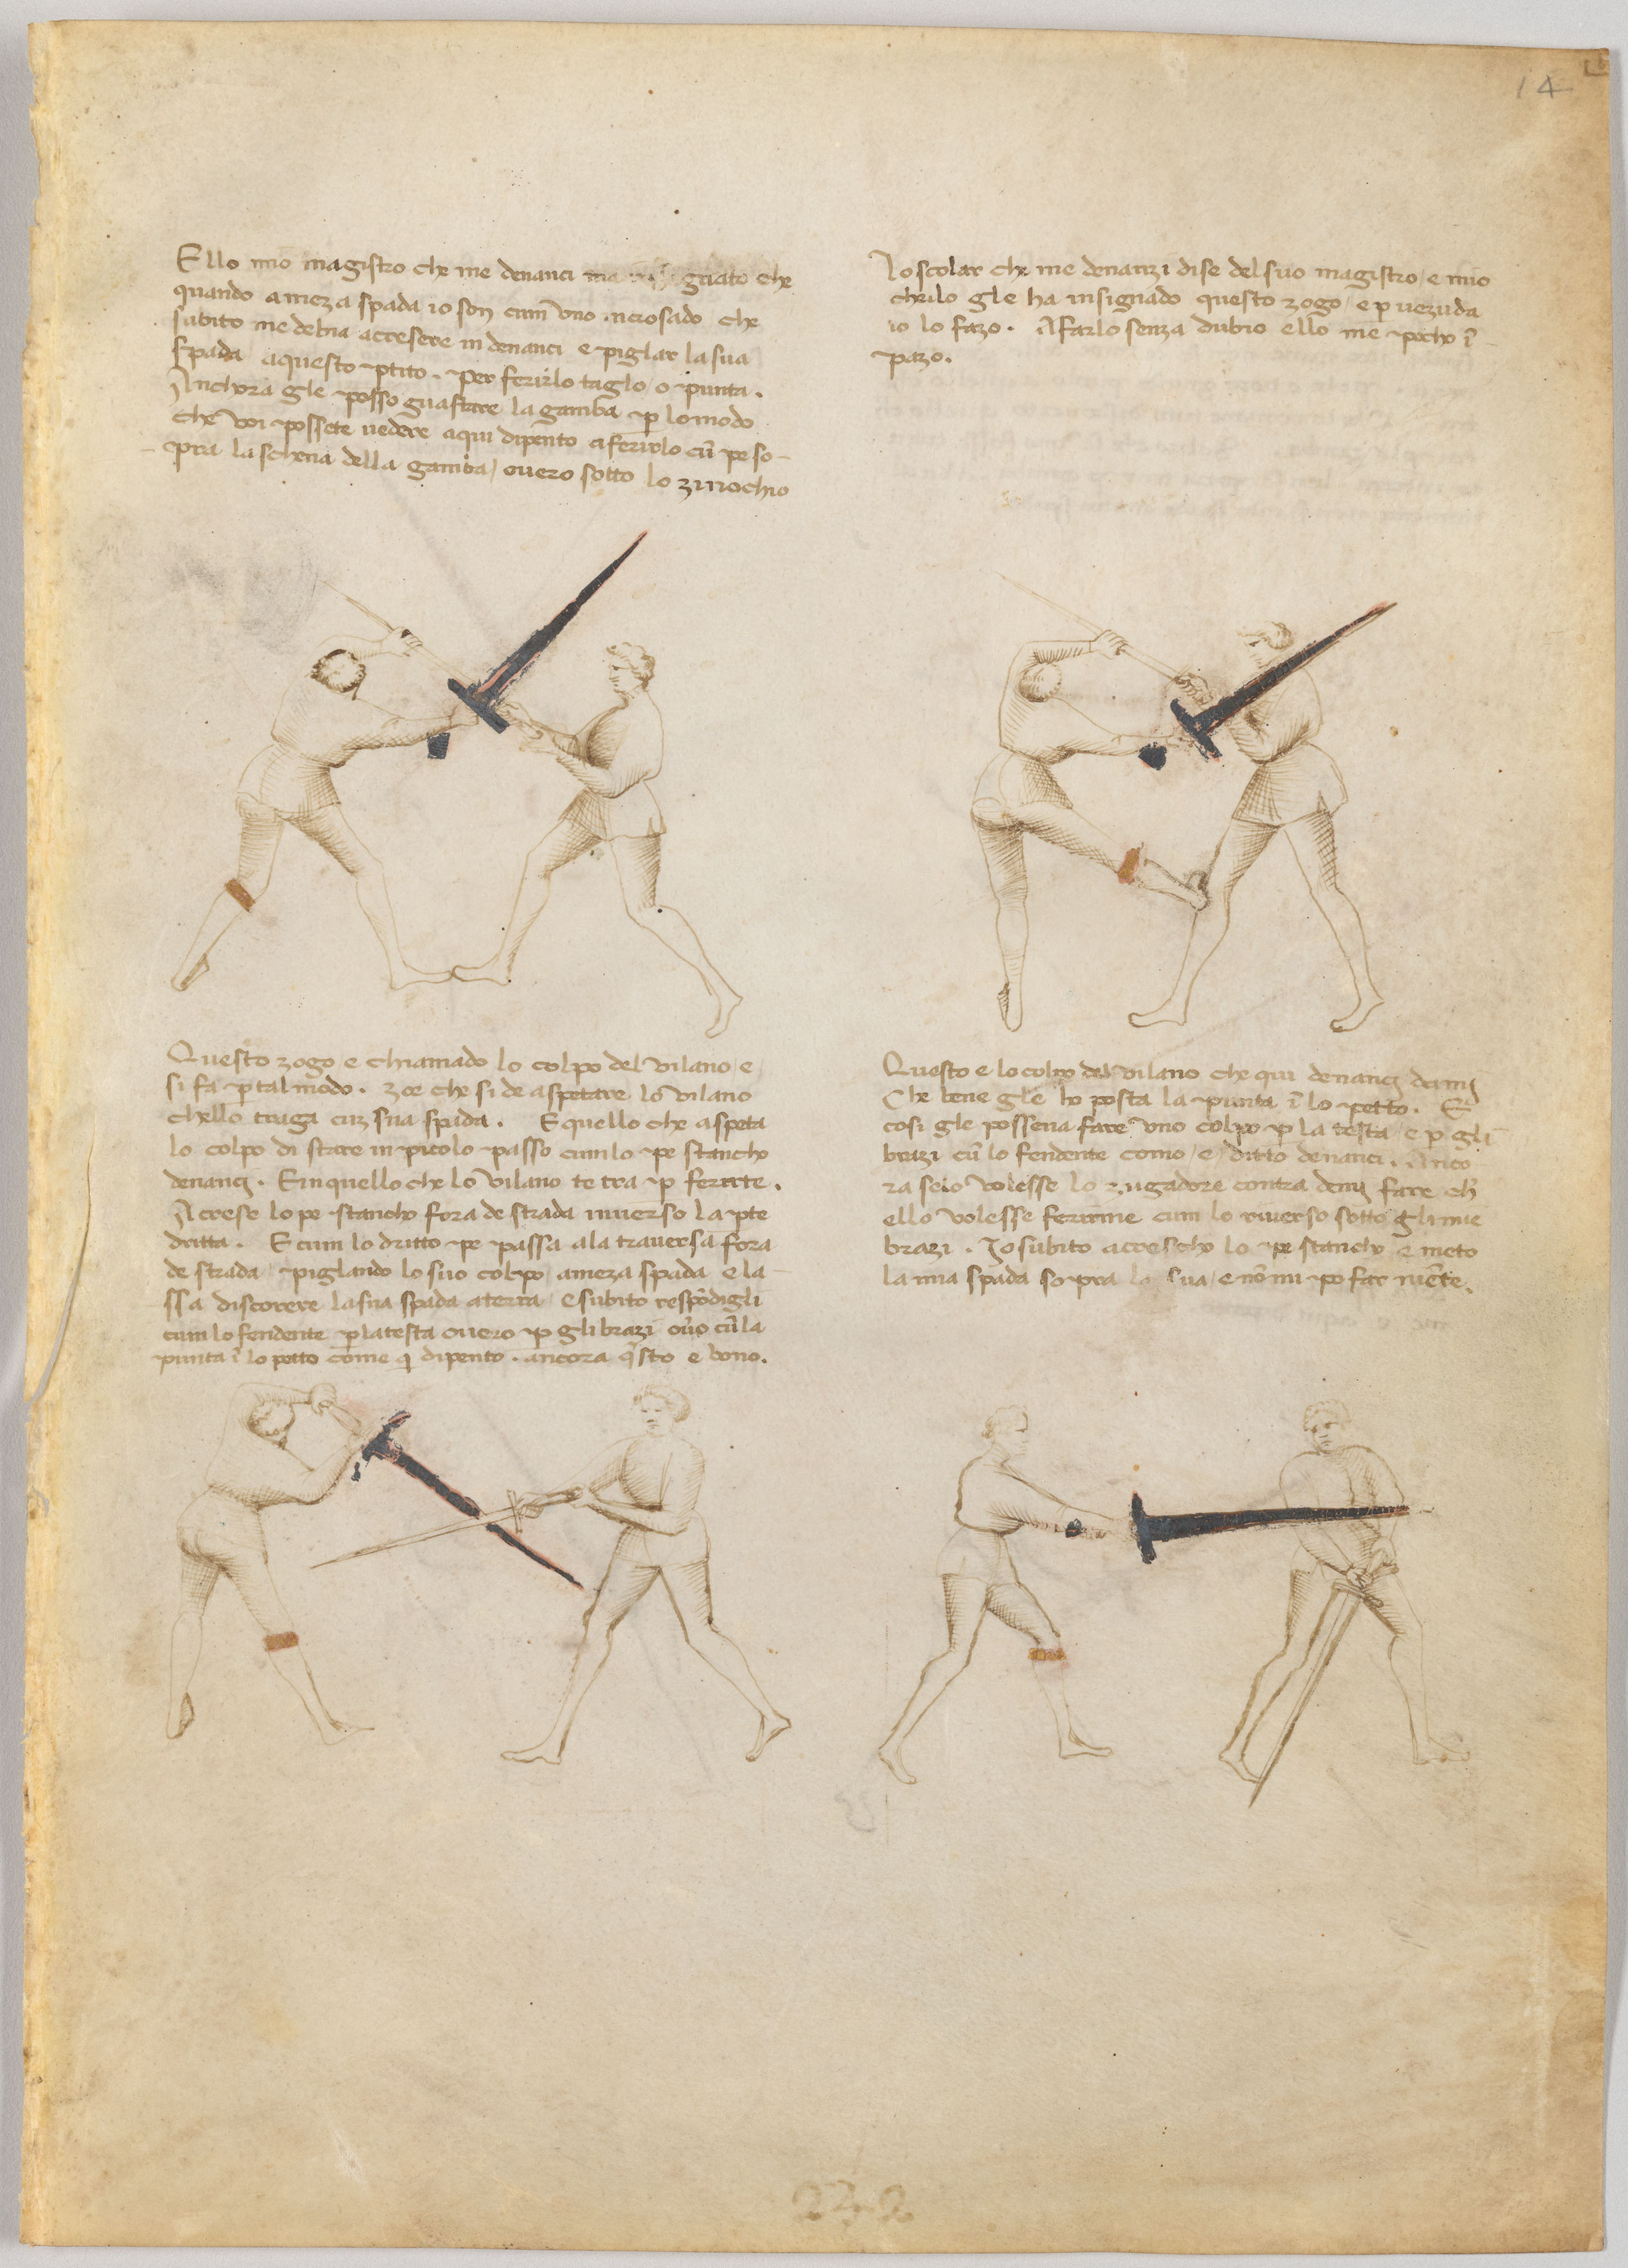 14
Ello mio magistro che me denanci ma gnato che
quando a meza spada io son cum uno incrosado che
subito me debia acresere in denanci e piglar la sua
spada a questo ptito. Per ferirlo taglo o punta.
Anchora gle posso guastare la gamba p lo modo
che voi possete vedere aqui dipento a ferirlo cū pe so-
pra la schena della gamba / overo sotto lo zinochio
Lo scolar che me denanzi dise del suo magistro e mio
cheilo gle ha insignado questo zogo / e p vezuda
io lo fazo. A farlo senza dubio ello me pocho ī
pazo.
Questo zogo / e chiamado lo colpo del vilano / e
si fa p tal modo. zoe che si de aspetare lo vilano
chello traga cuz sua spada. E quello che aspeta
lo colpo di stare in picolo passo cum lo pe stancho
denanci. E in quello che lo vilano te tra p ferirte.
Acrese lo pe stancho fora de strada inverso la pte
dritta. E cum lo dritto pe passa a la traversa fora
de strada piglando lo suo colpo / a meza spada e la
ssa discorere la sua spada a terra / e subito respōdigli
cum lo fendente p la testa overo p gli brazi ov̄o cū la
punta ī lo petto come qi dipento. ancora q̄sto e bono.
Questo e lo colpo del vilano che qui denanci de mi
Che bene gle ho posta la punta ī lo petto. E
cosi gle posseva fare uno colpo p la testa / e p gli
brazi cū lo fendente como / e / ditto denanci. Anco
ra se io volesse lo zugadore contra de mi fare ch'
ello volesse ferirme cum lo riverso sotto gli mie
brazi. Io subito acrescho lo pe stancho e meto
la mia spada sopra la sua / e nō mi po far niēte.